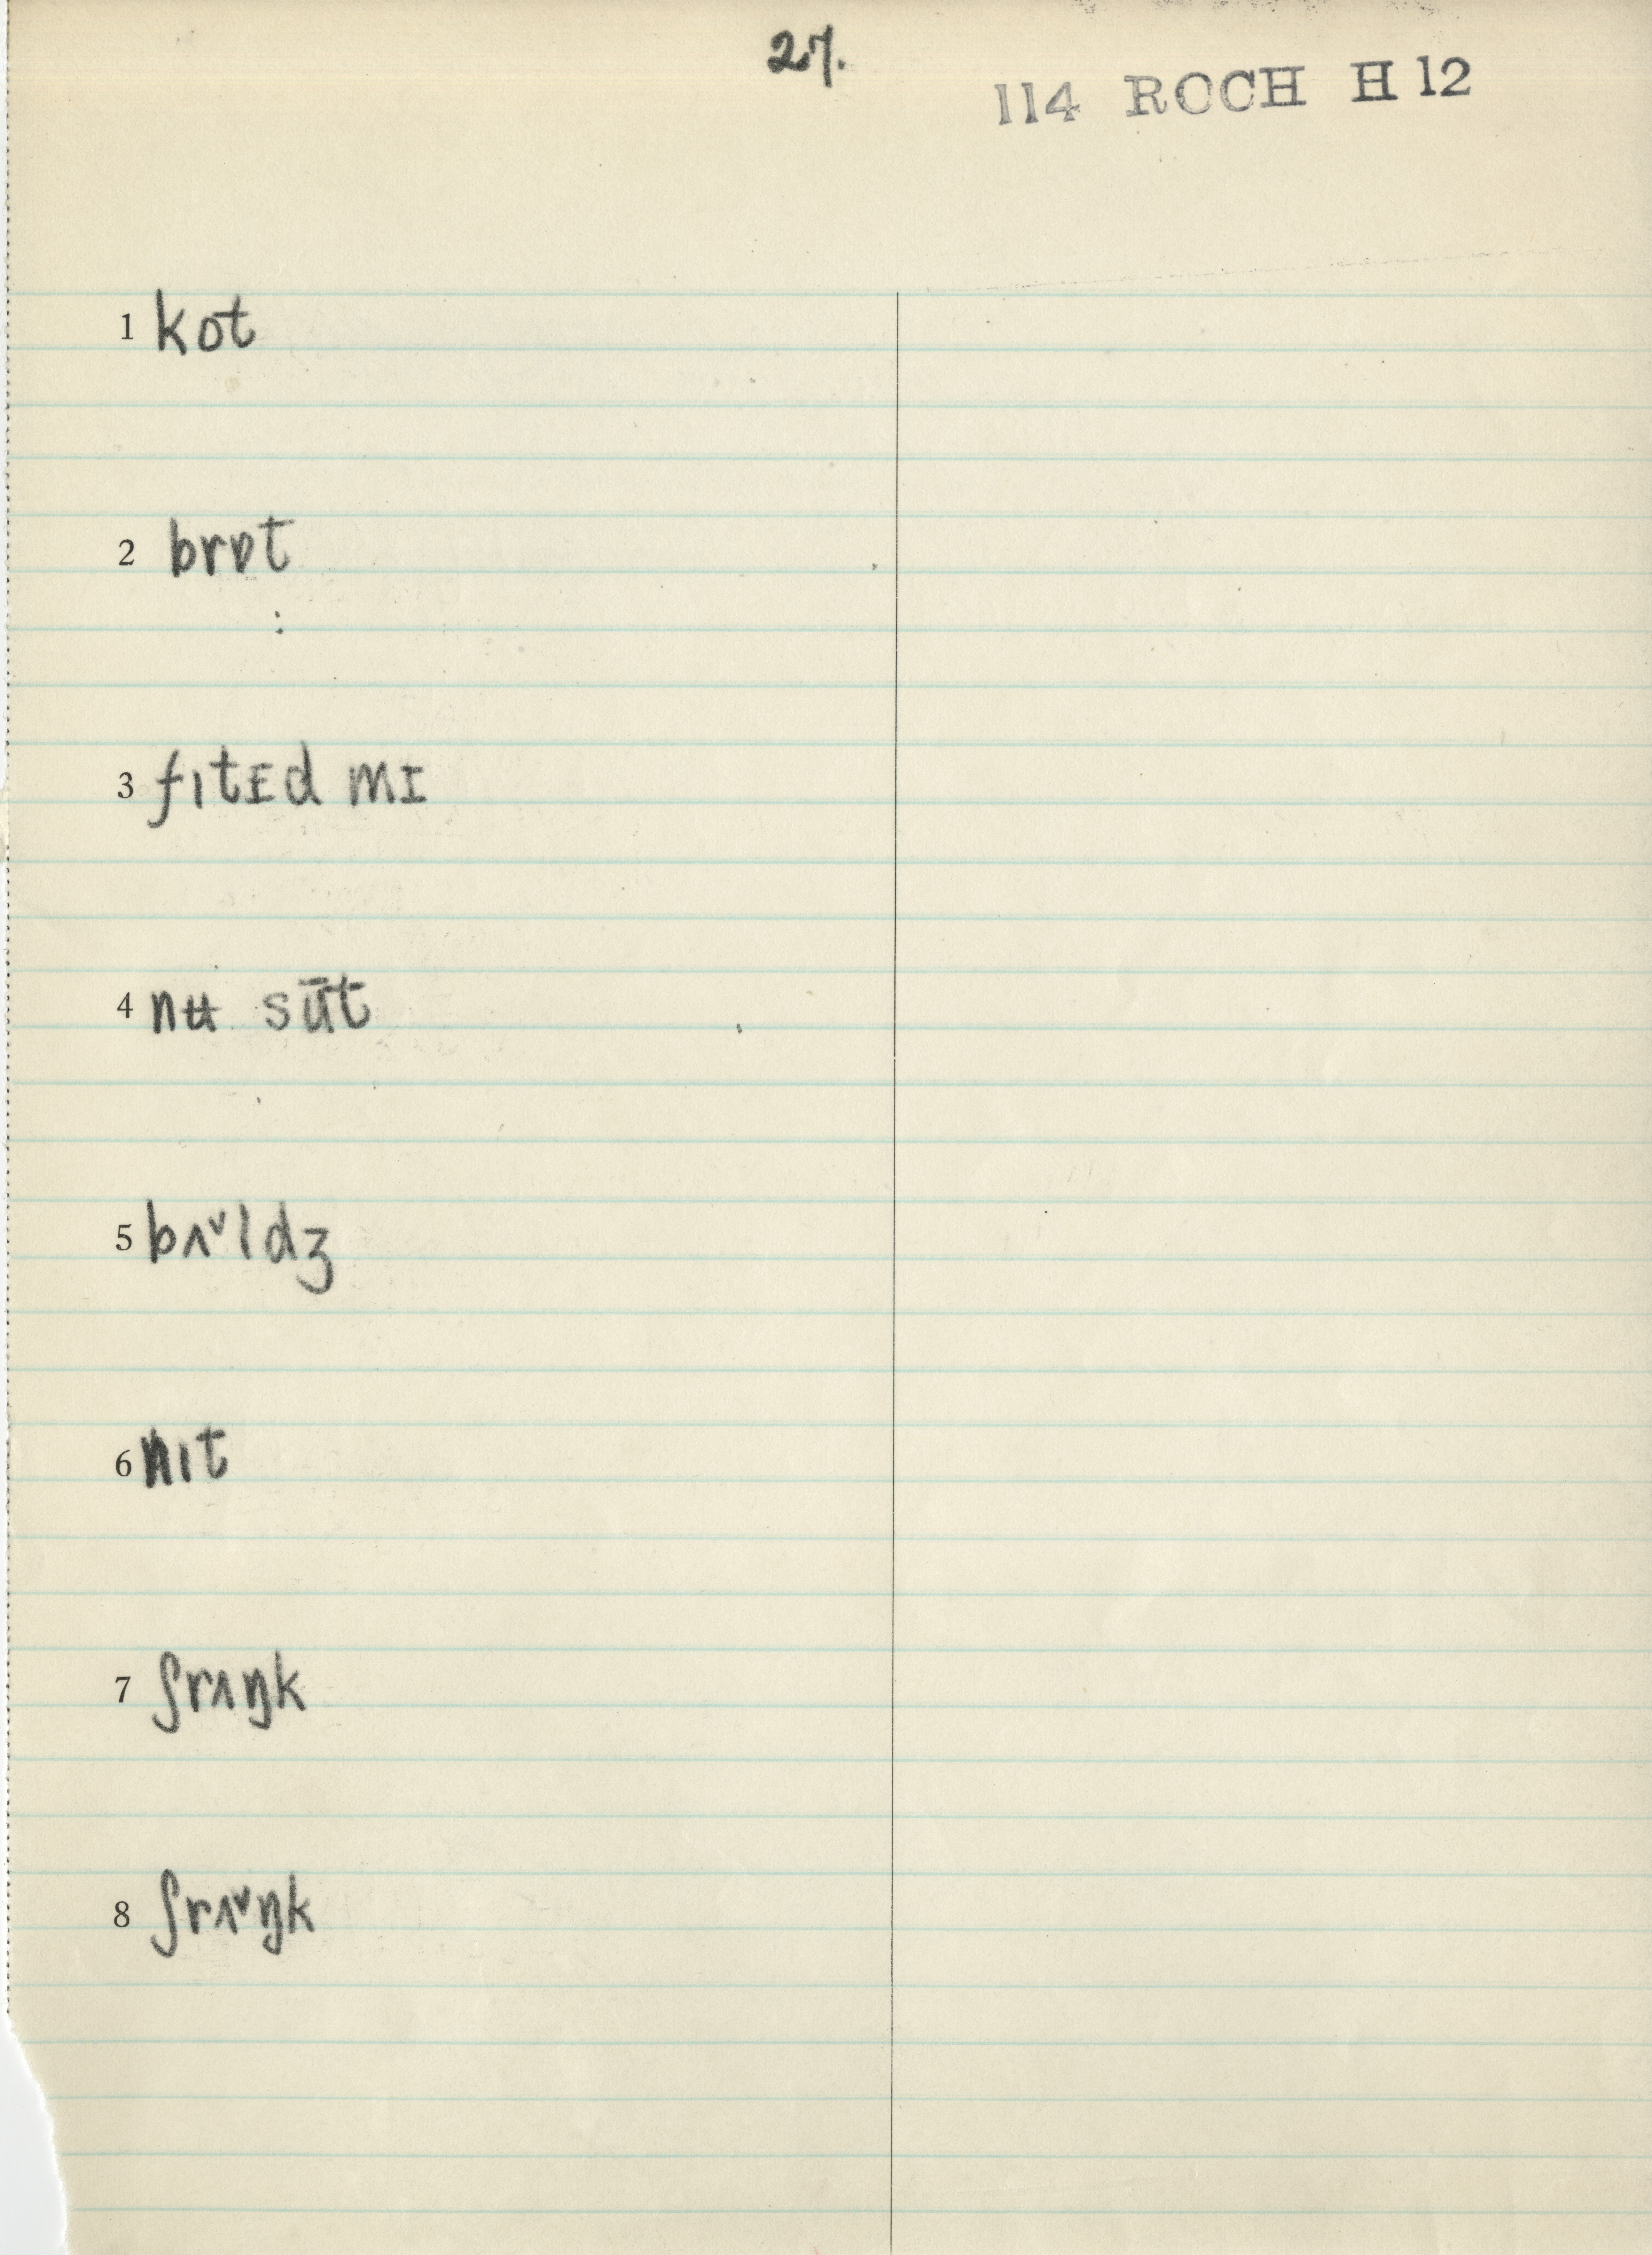 27.
114 ROCH H 12
1 kot
2 brɒt
3 fıtᴇd mɪ
4 nʉ sūt
5 bʌˇldʒ
6 nıt
7 ʃrʌŋk
8 ʃrʌˇŋk